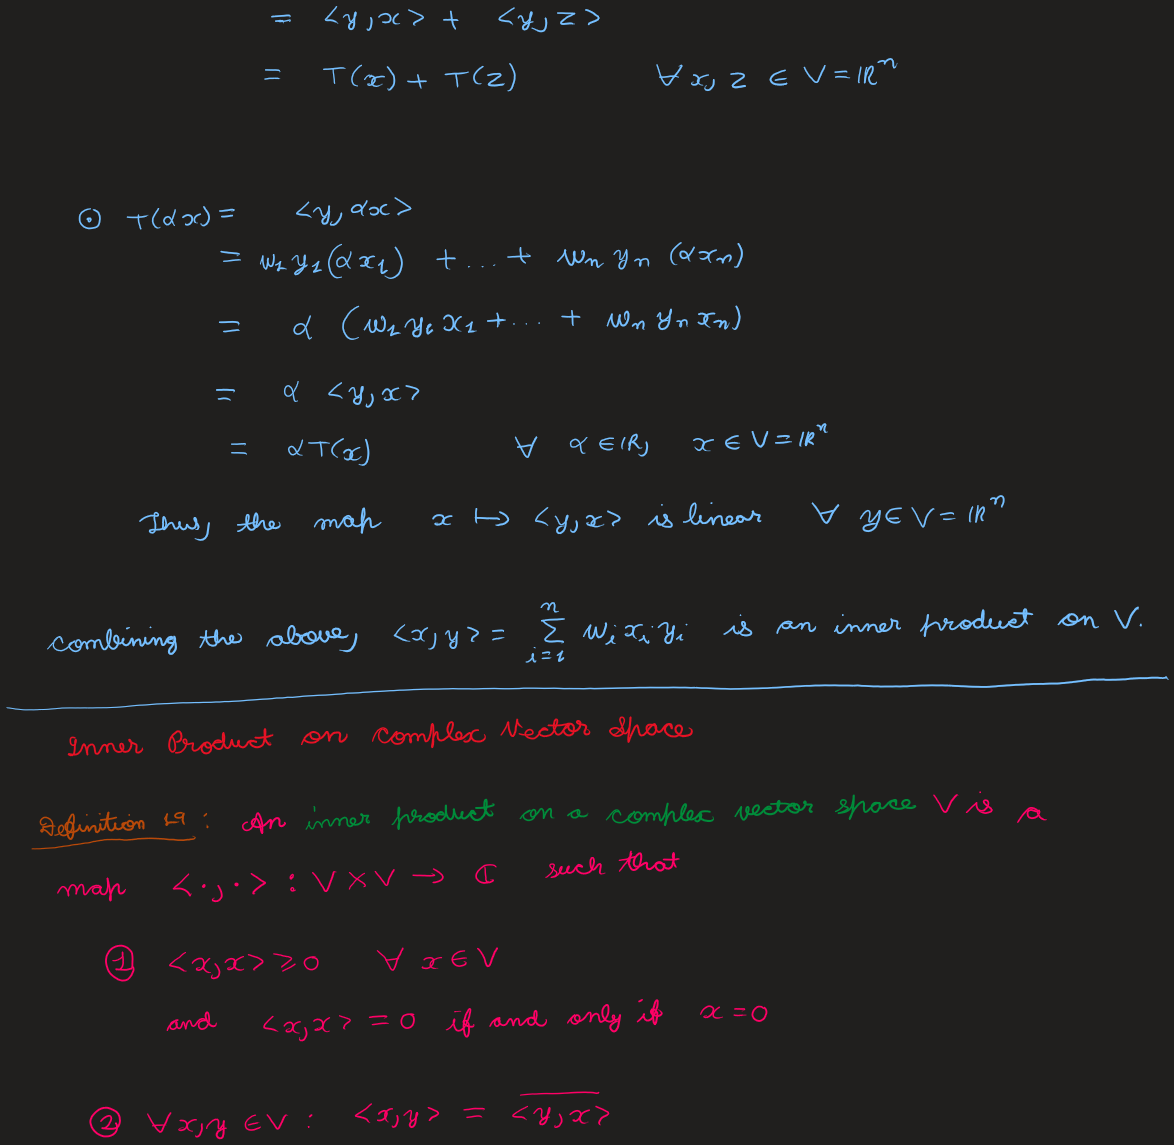 = <y,x> + <y,z>
= T(x) + T(z) ∀ x, z ∈ V = ℝⁿ
⊙ T(αx) = <y, αx>
= w₁y₁(αx₁) + ... + wₙyₙ(αxₙ)
= α (w₁y₁x₁ + ... + wₙyₙxₙ)
= α <y,x>
= αT(x) ∀ α ∈ ℝ, x ∈ V = ℝⁿ
Thus, the map x ↦ <y,x> is linear ∀ y ∈ V = ℝⁿ
combining the above, <x,y> = ∑ᵢ₌₁ⁿ wᵢxᵢyᵢ is an inner product on V.
Inner Product on complex Vector Space
Definition 19: An inner product on a complex vector space V is a
map <·,·> : V × V → ℂ such that
① <x,x> ≥ 0 ∀ x ∈ V
and <x,x> = 0 if and only if x = 0
② ∀ x,y ∈ V : <x,y> = \overline{<y,x>}